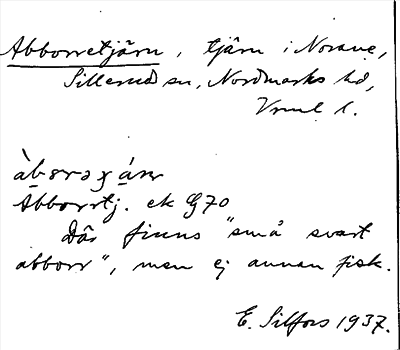 Abborretjärn, tjärn i Norane,
Sillerud sn, Nordmarks hd,
Vrml l.
Abborrtj. ek G70
Där finns "små svart
abborr", men ej annan fisk.
E. Silfors 1937.